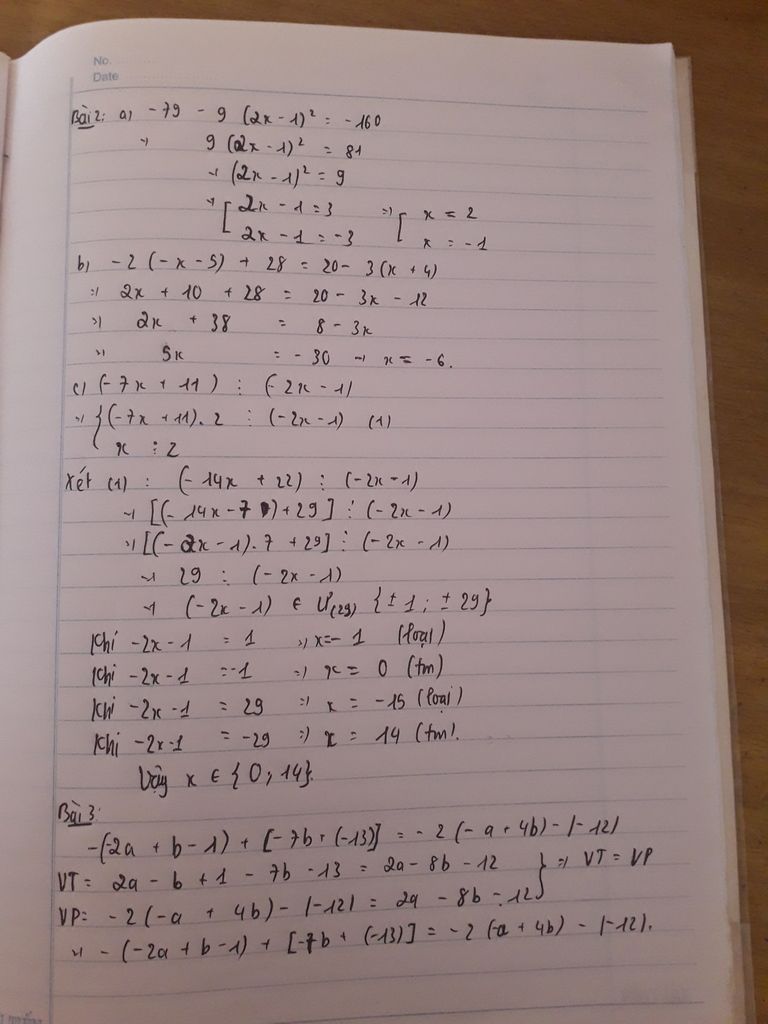 No.
Date
Bài 2: a) -79 - 9 (2x - 1)² = -160
=> 9 (2x - 1)² = 81
=> (2x - 1)² = 9
=> [ 2x - 1 = 3 => [ x = 2
2x - 1 = -3 x = -1
b) -2 (-x - 5) + 28 = 20 - 3(x + 4)
=> 2x + 10 + 28 = 20 - 3x - 12
=> 2x + 38 = 8 - 3x
=> 5x = -30 => x = -6.
c) (-7x + 11) ⋮ (-2x - 1)
=> { (-7x + 11).2 ⋮ (-2x - 1) (1)
x ⋮ 2
Xét (1) : (-14x + 22) ⋮ (-2x - 1)
=> [(-14x - 7) + 29] ⋮ (-2x - 1)
=> [(-2x - 1).7 + 29] ⋮ (-2x - 1)
=> 29 ⋮ (-2x - 1)
=> (-2x - 1) ∈ Ư(29) {±1; ±29}
Khi -2x - 1 = 1 => x = -1 (loại)
Khi -2x - 1 = -1 => x = 0 (tm)
Khi -2x - 1 = 29 => x = -15 (loại)
Khi -2x - 1 = -29 => x = 14 (tm).
Vậy x ∈ {0; 14}.
Bài 3:
-(-2a + b - 1) + [-7b + (-13)] = -2 (-a + 4b) - |-12|
VT = 2a - b + 1 - 7b - 13 = 2a - 8b - 12 } => VT = VP
VP = -2 (-a + 4b) - |-12| = 2a - 8b - 12
=> -(-2a + b - 1) + [-7b + (-13)] = -2 (-a + 4b) - |-12|.